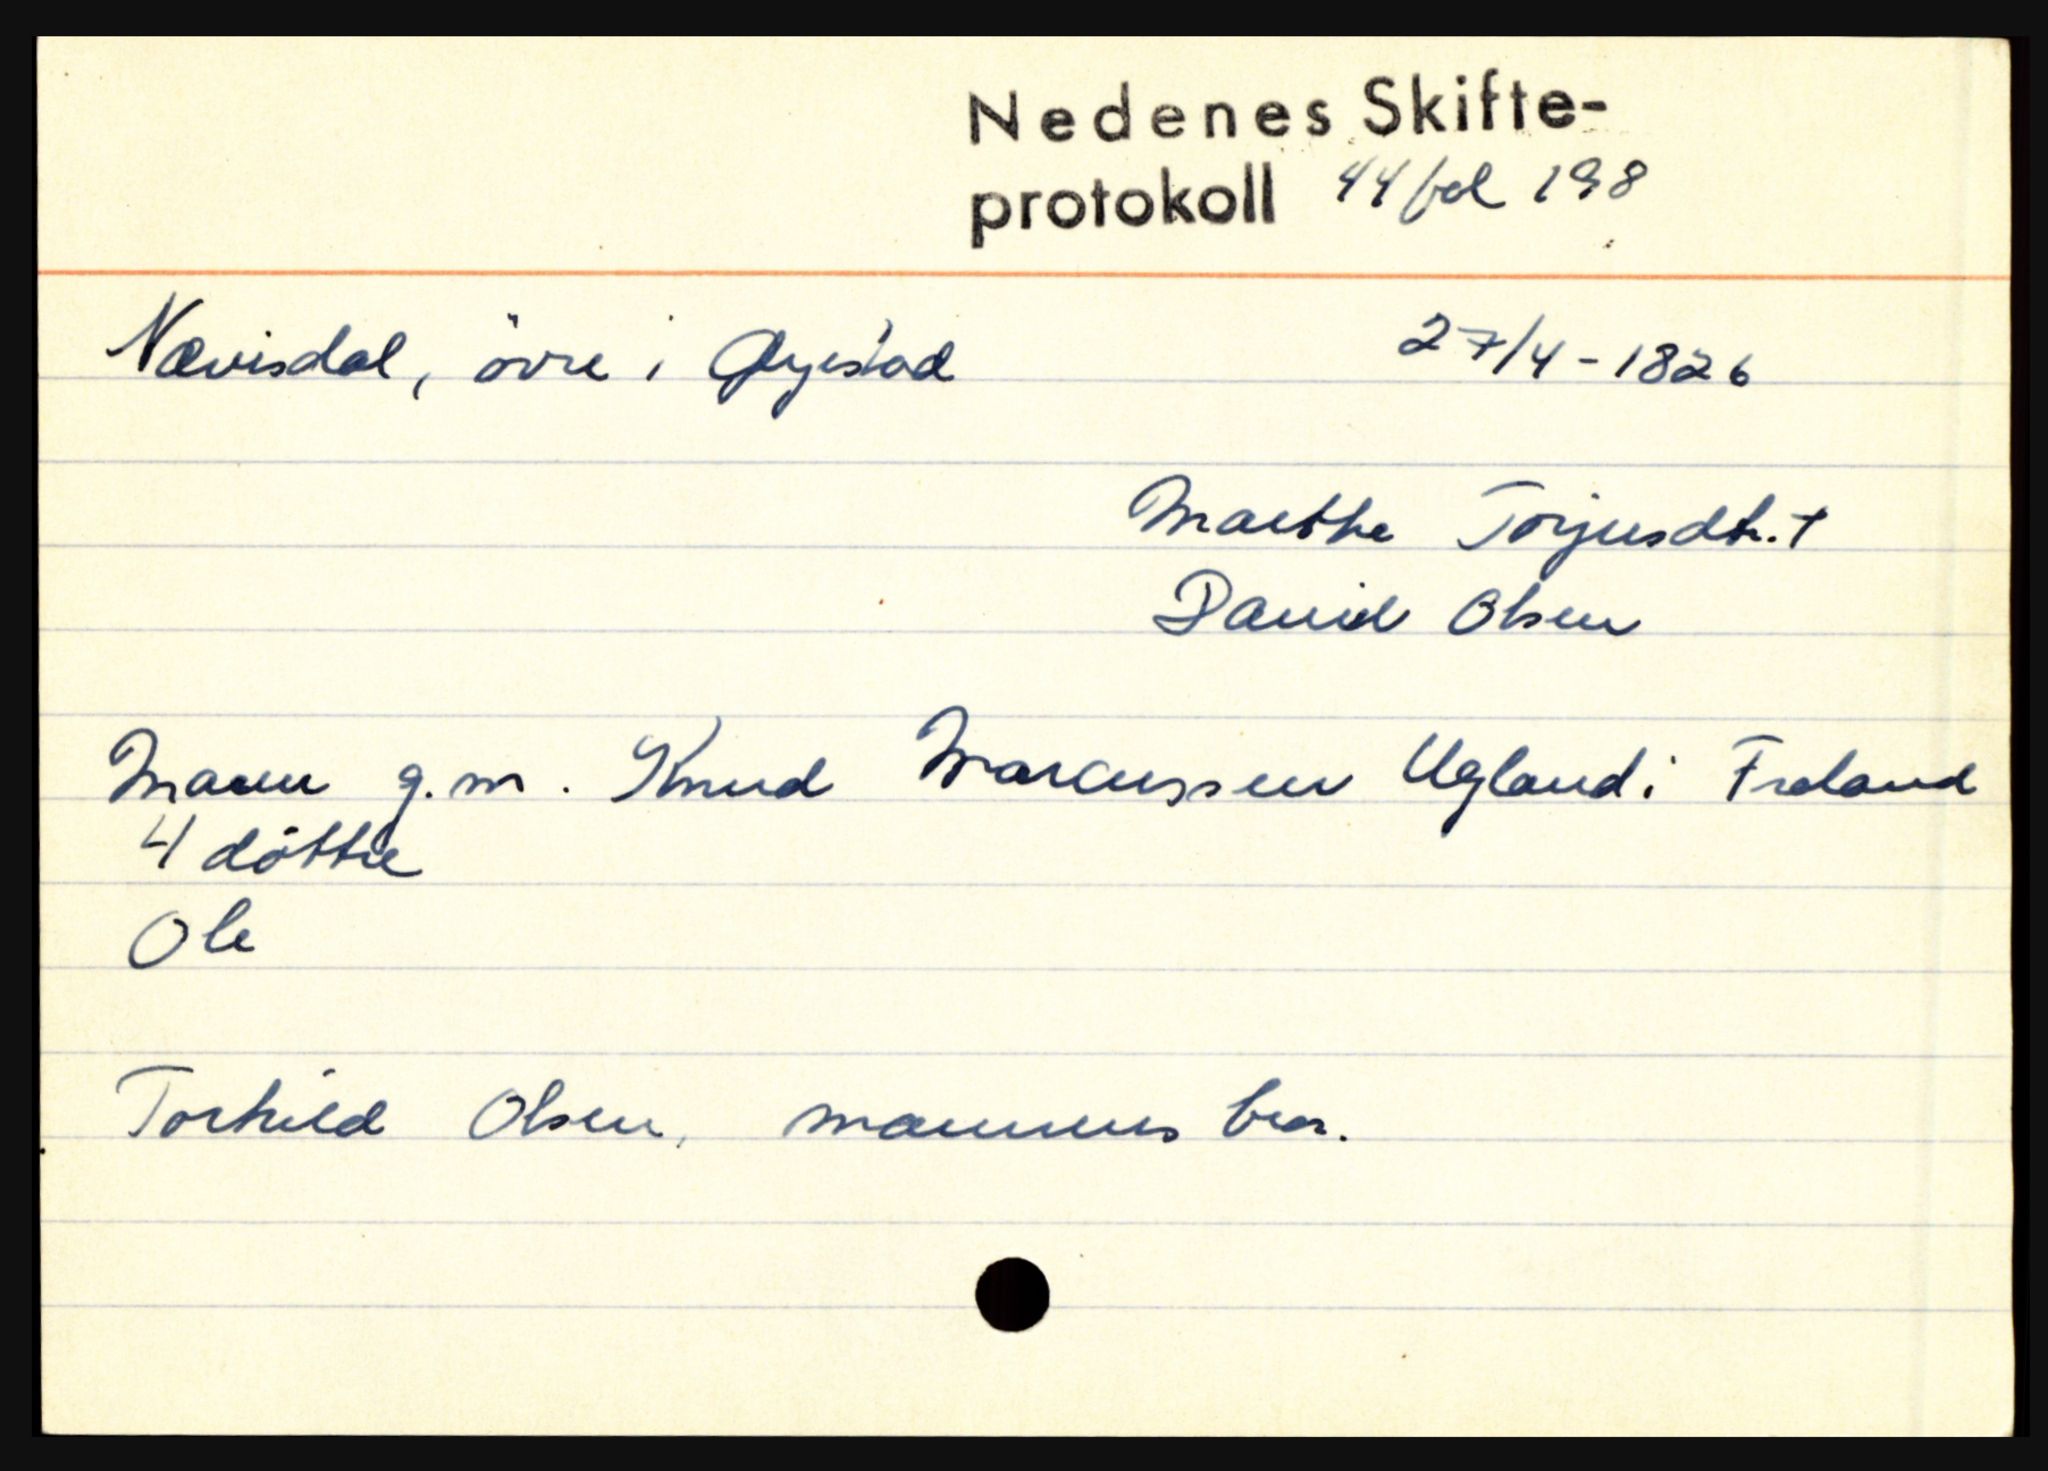 Nedenes Skifte-
protokoll 44 fol 198
Nævisdal, övre i Øyestad 27/4-1826
Marthe Torjusdtr. +
David Olsen
Maren g.m. Knud Marcussen Ugland i Froland
4 döttre
Ole
Torkild Olsen, mannens bror.